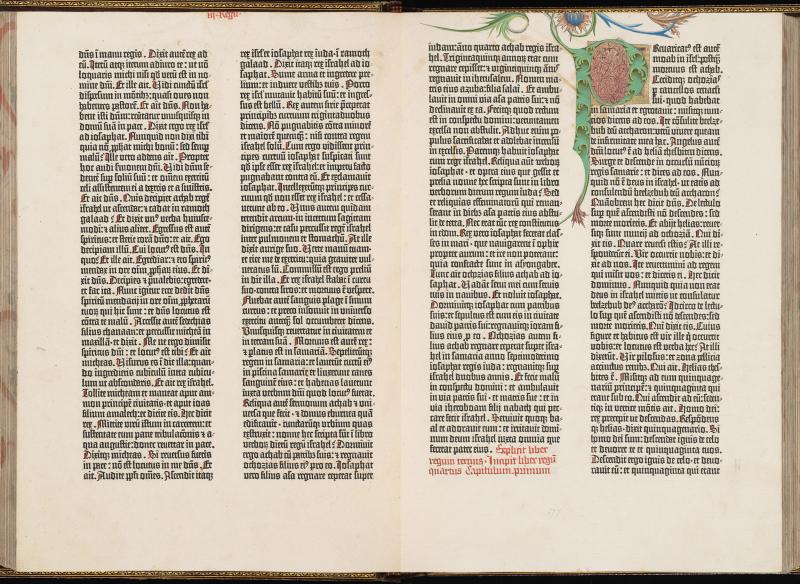 III·Regū
dñs ī manu regis. Dixit autē rex ad
eū. Iterū atq; iterum adiuro te: ut nō
loquaris michi nisi qđ verū est in no-
mine dñi. Et ille ait. Vidi cunctū isrl'
dispersum in mōtib;: quasi oves non
habentes pastorē. Et ait dñs. Non ha-
bent isti dñm: revertatur unusquisq; in
domū suā in pace. Dixit ergo rex isrl'
ad iosaphat. Nunquid non dixi tibi
quia nō pphat michi bonū: sed semp
malū? Ille vero addens ait. Propter-
hoc audi sermonem dñi. Vidi dñm se-
dente sup soliū suū: et omnem exercitū
celi assistentem ei a dextris et a sinistris.
Et ait dñs. Quis decipiet achab regē
israhel ut ascendat: et cadat in ramoth
galaad? Et dixit un9 verba huiusce-
modi: et alius aliter. Egressus est autē
spiritus: et stetit corā dño: et ait. Ego
decipiam illū. Cui locut9 est dñs. In
quo? Et ille ait. Egrediar: et ero spirit9
mendax in ore oīm pphaȝ eius. Et di-
xit dñs. Decipies et pvalebis: egredere
et fac ita. Nunc igitur ecce dedit dñs
spiritū mendacij in ore oīm pphetarū
tuoȝ qui hic sunt: et dñs locutus est
cōtra te malū. Accessit autē sedechias
filius chanaan: et percussit micheā in
maxillā: et dixit. Me ne ergo dimisit
spiritus dñi: et locut9 est tibi? Et ait
micheas. Visurus es ī die illa: quan-
do ingredieris cubiculū intra cubicu-
lum ut abscondaris. Et ait rex israhel.
Tollite micheam et maneat apud am-
mon principē civitatis: et apud ioas
filium amalech: et dicite eis. Hec dicit
rex. Mittite virū istum in carcerem: et
sustentate eum pane tribulacōnis et a-
qua angustie: donec revertar in pace.
Dixitq; micheas. Si reversus fueris
in pace: nō est locutus in me dñs. Et
ait. Audite ppli omēs. Ascendit itaq;
rex isrl' et iosaphat rex iuda ī ramoth
galaad. Dixit itaq; rex israhel ad io-
saphat. Sume arma et ingredere pre-
lium: et induere vestibz tuis. Porro
rex isrl' mutavit habitū suū: et ingres-
sus est bellū. Rex autem sirie pceperat
principibs curruum trigintaduobus
dicens. Nō pugnabitis cōtra minorē
et maiorē quempiā: nisi contra regem
israhel solū. Cum ergo vidissent prin-
cipes curruū iosaphat suspicati sunt
qđ ipse esset rex israhel: et impetu facto
pugnabant contra eū. Et exclamavit
iosaphat. Intellexeruntq; principes cur-
ruum qđ non esset rex israhel: et cessa-
verunt ab eo. Unus autem quidam
tetendit arcum in incertum sagittam
dirigens: et casu percussit regē israhel
inter pulmonem et stomachū. At ille
dixit aurige suo. Verte manū tuam-
et eice me de exercitu: quia graviter vul-
neratus sū. Commissū est ergo preliū
in die illa. Et rex israhel stabat ī curru
suo contra siros: et mortuus ē vespere.
Fluebat autē sanguis plage ī sinum
currus: et preco insonuit in universo
exercitu anteq̄ sol occumberet dicens.
Unusquisq; revertatur in civitatem et
in terram suā. Mortuus est autē rex:
et platus est in samariā. Sepelieruntq;
regem in samaria: et laverūt currū ei9
in piscina samarie: et linxerunt canes
sanguinē eius: et habenas laverunt
iuxta verbum dñi quod locut9 fuerat.
Reliqua autē sermonum achab et uni-
versa que fecit · et domus eburnea quā
edificavit · cunctarūq; urbium quas
extruxit: nonne hec scripta sūt ī libro
verboȝ dierū regū israhel? Dormivit
ergo achab cū patribs suis: et regnavit
ochozias filius ei9 pro eo. Iosaphat
vero filius asa regnare ceperat super
iudam: āno quarto achab regis isra-
hel. Trigintaquinq; annoȝ erat cum
regnare cepisset: et vigintiquinq; annis
regnavit in iherusalem. Nomen ma-
tris eius azuba: filia salai. Et ambu-
lavit in omni via asa patris sui: et nō
declinavit ex ea. Fecitq; quod rectum
est in conspectu domini: verūtamen
excelsa non abstulit. Adhuc enim po-
pulus sacrificabat et adolebat incensū
in excelsis. Pacemq; habuit iosaphat
cum rege israhel. Reliqua autē verboȝ
iosaphat · et opera eius que gessit et
prelia nonne hec scripta sunt in libro
verborum dierum regum iuda? Sed
et reliquias effeminatorū qui reman-
serant in diebs asa patris eius abstu-
lit de terra. Nec erat tūc rex constitutus
in edom. Rex vero iosaphat fecerat clas-
ses in mari · que navigarent ī ophir
propter aurum: et ire non potuerunt ·
quia confracte sunt in asyongaber.
Tunc ait ochozias filius achab ad io-
saphat. Vadāt servi mei cum servis
tuis in navibus. Et noluit iosaphat.
Dormivitq; iosaphat cum patribus
suis: et sepultus est cum eis in civitate
david patris sui: regnavitq; ioram fi-
lius eius p eo. Ochozias autem fi-
lius achab regnare ceperat super isra-
hel in samaria anno septimodecimo
iosaphat regis iuda: regnavitq; sup
israhel duobus annis. Et fecit malū
in conspectu domini: et ambulavit
in via patris sui · et matris sue: et in
via iheroboam filij nabath qui pec-
care fecit israhel. Servivit quoq; ba-
al et adoravit eum: et irritavit domi-
num deum israhel iuxta omnia que
fecerat pater eius. Explicit liber
regum tercius · Incipit liber regū
quartus Capitulum primum
Prevaricat9 est autē
moab in isrl' postq̄
mortuus est achab.
Ceciditq; ochozias
p cancellos cenacli
sui · quod habebat
in samaria et egrotavit: misitq; nun-
cios dicens ad eos. Ite cōsulite beelze-
bub deū accharon: utrū vivere queam
de infirmitate mea hac. Angelus autē
dñi locut9 ē ad heliā thesbiten dicens.
Surge et descende in occursū nūcioȝ
regis samarie: et dices ad eos. Nun-
quid nō ē deus in israhel · ut eatis ad
consulendū beelzebub deū accharon?
Quāobrem hec dicit dñs. De lectulo
sup quē ascendisti nō descendes: sed
morte morieris. Et abijt helias: rever-
siq; sunt nuncij ad ochoziā. Qui di-
xit eis. Quare reversi estis? At illi re-
sponderūt ei. Vir occurrit nobis: et di-
xit ad nos. Ite revertimini ad regem
qui misit vos: et dicetis ei. Hec dicit
dominus. Nunquid quia non erat
deus in israhel mittis ut consulatur
beelzebub de9 accharon? Idcirco de lectu-
lo sup quē ascendisti nō descendes: sed
morte morieris. Qui dixit eis. Cuius
figure et habitus est vir ille q̄ occurrit
vobis: et locutus est verba hec? At illi
dixerūt. Vir pilosus: et zona pellicia
accinctus renibz. Qui ait. Helias thes-
bites ē. Misitq; ad eum quinquage-
nariū principē: et quinquaginta qui
erant sub eo. Qui ascendit ad eū: seden-
tiq; in vertice mōtis ait. Homo dei:
rex precepit ut descendas. Respōdens
q; helias · dixit quinquagenario. Si
homo dei sum: descendat ignis de celo
et devoret te et quinquaginta tuos.
Descendit ergo ignis de celo · et devo-
ravit eū: et quinquaginta qui erant